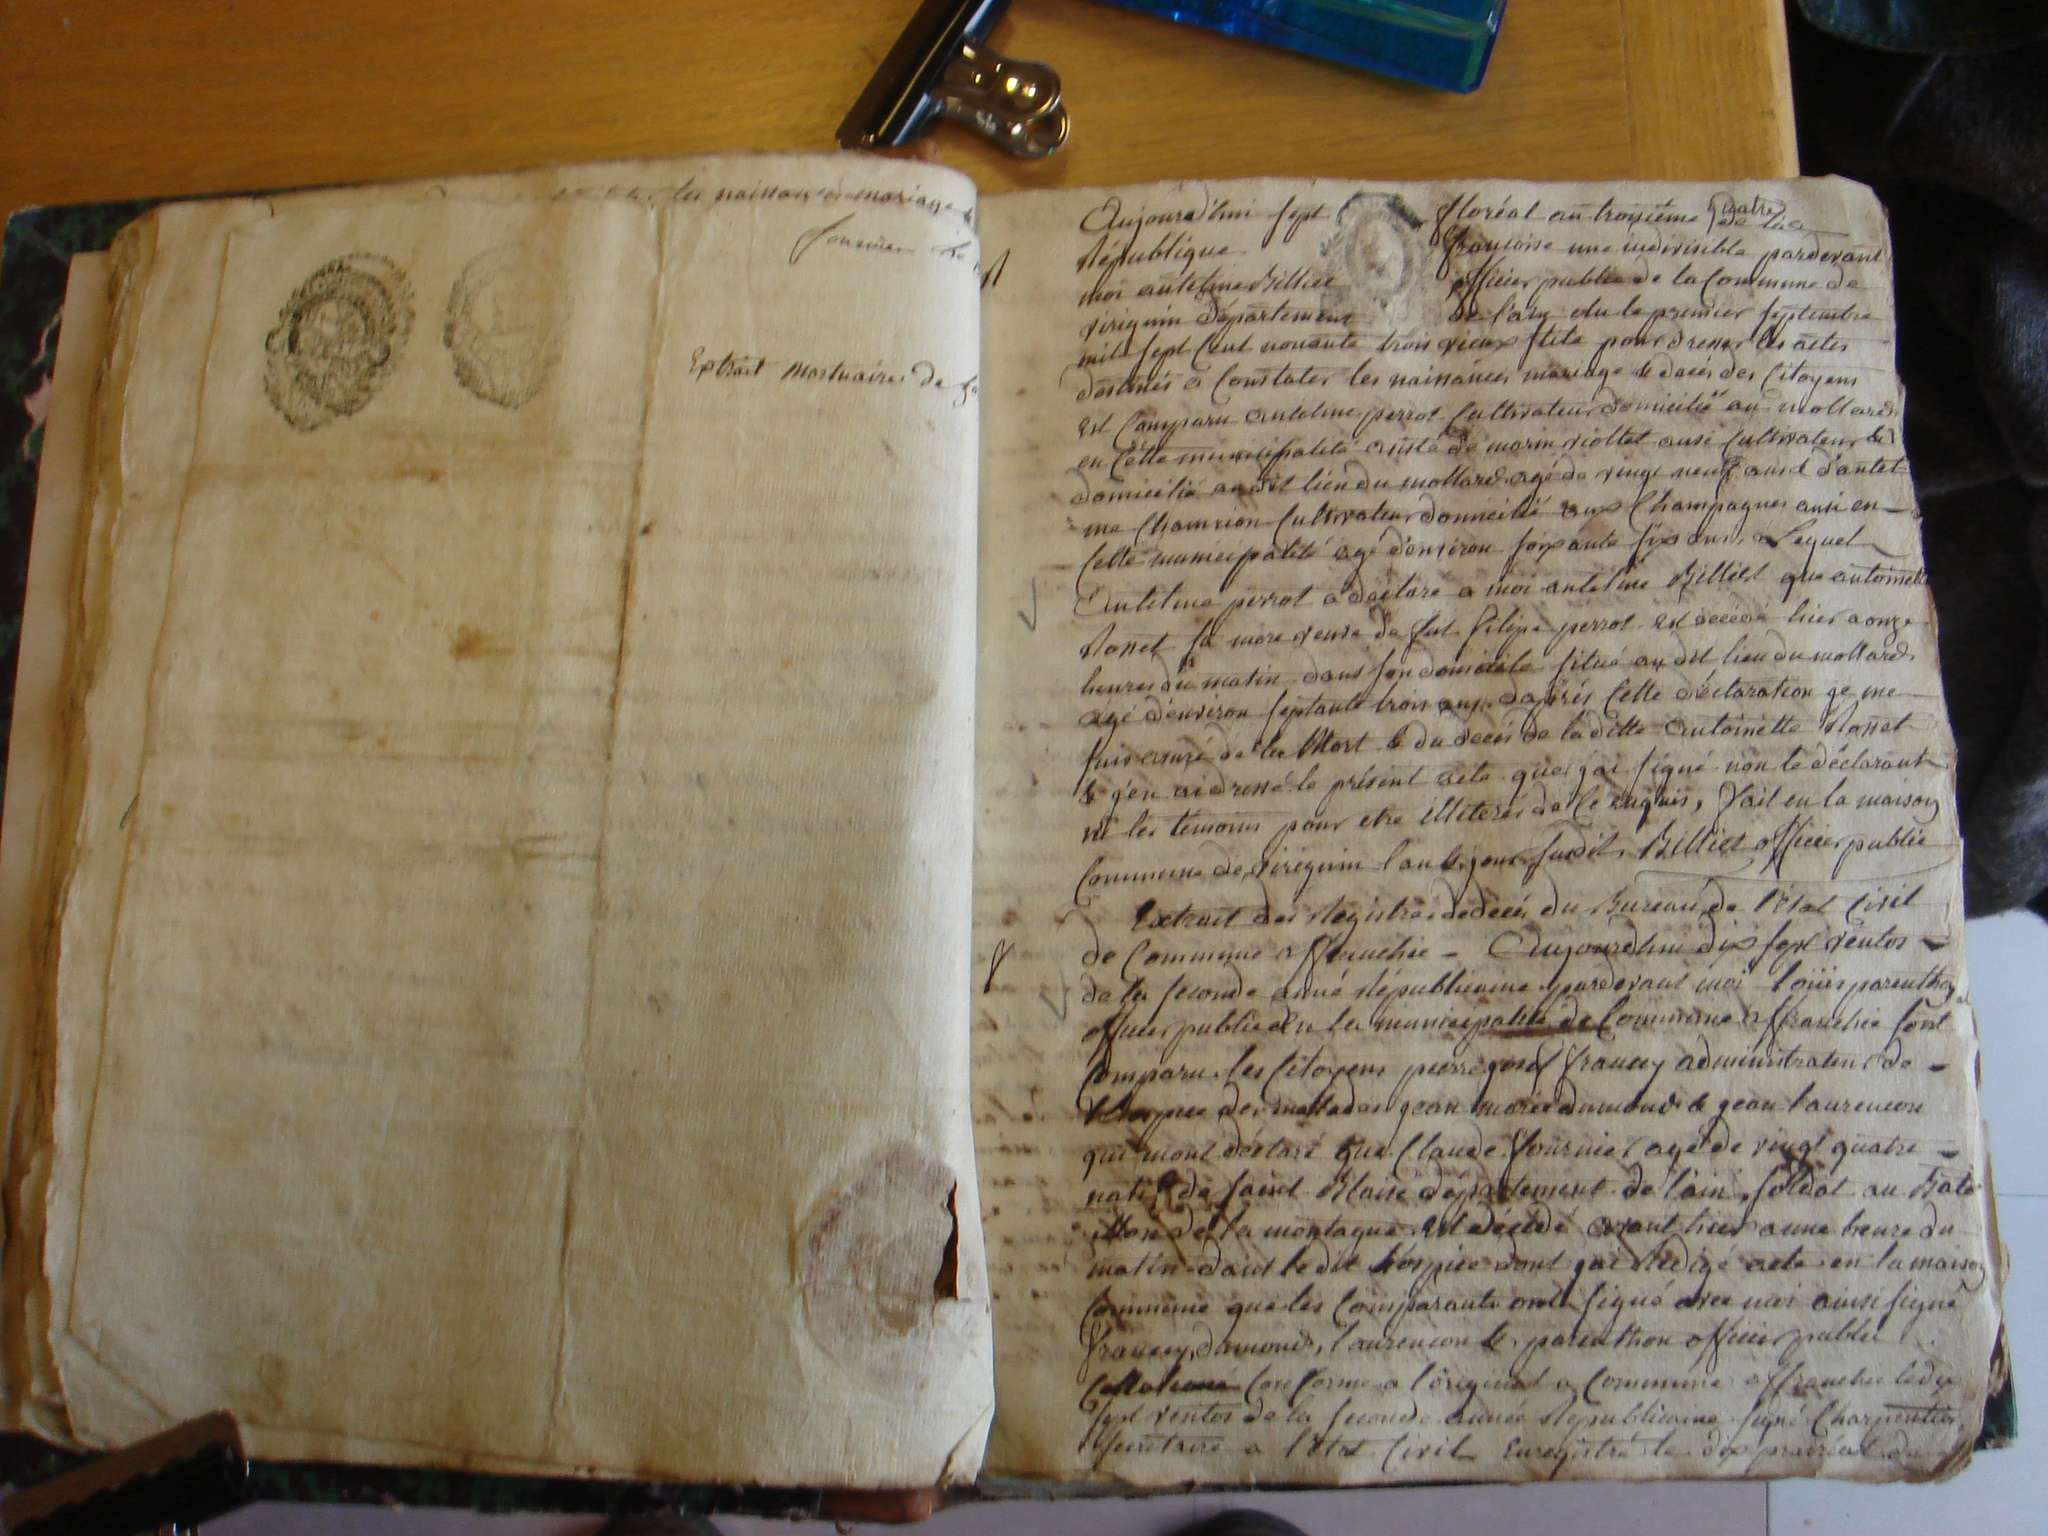 les naissances mariage &
Extrait Mortuaires de
Aujourd'hui sept floréal an troisième quatre de la
République francoise une indivisible pardevant
moi antelme Billiet officier public de la Commune de
virignin département de l'ain elu le premier septembre
mile sept Cent nonante trois vieux stile pour dresser les actes
destinés a Constater les naissances mariage & decés des Citoyens
est Comparu antelme perrot Cultivateur domicilié au mollard
en Cette municipalité assisté de marin viollet ausi Cultivateur &
domicilié au dit lieu du mollard agé de vingt neuf ans & d'antel-
me Chamrion Cultivateur domicilié aux Champagnes ausi en
Cette municipalité agé d'environ soixante six ans, Lequel
Antelme perrot a déclaré a moi antelme Billiet que antoinette
Rosset sa mere veuve de fut filipe perrot est décédé hier a onze
heures du matin dans son domicile situé au dit lieu du mollard
agé d'environ septante trois ans, daprés Cette déclaration je me
suis assuré de la Mort & du decés de la ditte Antoinette Rosset
& j'en ai dressé le présent acte que j'ai signé non le déclarant
ni les témoins pour etre illiterés de Ce enquis, fait en la maison
Commune de virignin l'an & jour susdit, Billiet officier public
Extrait des Registres de decés du Bureau de l'Etat Civil
de Commune affranchie - Aujourdhui dix sept ventos -
de la seconde anné Républicaine pardevant moi louis parenthon
officier public de la municipalité de Commune affranchie sont
Comparu les Citoyens pierre josef francey administrateur de -
l'hospice des mallades jean marie dumond & jean laurencon
qui mont déclaré que Claude fournier agé de vingt quatre -
natif de saint Blaise département de l'ain, soldat au Batá
illon de la montagne est décédé avant hier a une heure du
matin dans le dit hospice dont jai Rédigé acte en la maison
Commune que les Comparants ont signé avec moi ainsi signé
francey, dumond, laurencon & parenthon officier public
Collationné Conforme a l'original a Commune affranchie le dix
sept ventos de la seconde année Républicaine signé Charpentier
secrétaire a l'état Civil Enregistré le dix prairéal du